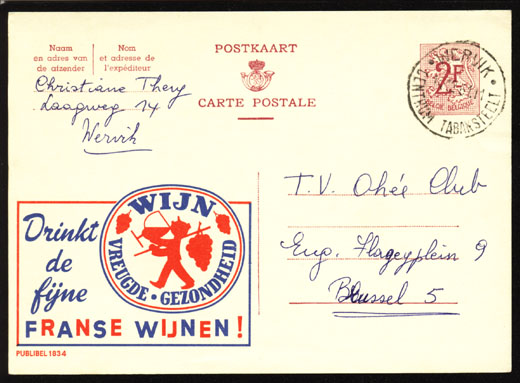 Naam en adres van de afzender
Nom et adresse de l'expéditeur
POSTKAART
CARTE POSTALE
2F
WERVIK
CENTRUM TABAKSTEELT
Christiane Thery
Laagweg 14
Wervik
T.V. Ohée Club
Eug. Flageyplein 9
Brussel 5
WIJN
VREUGDE · GEZONDHEID
Drinkt
de
fijne
FRANSE WIJNEN!
PUBLIBEL 1834